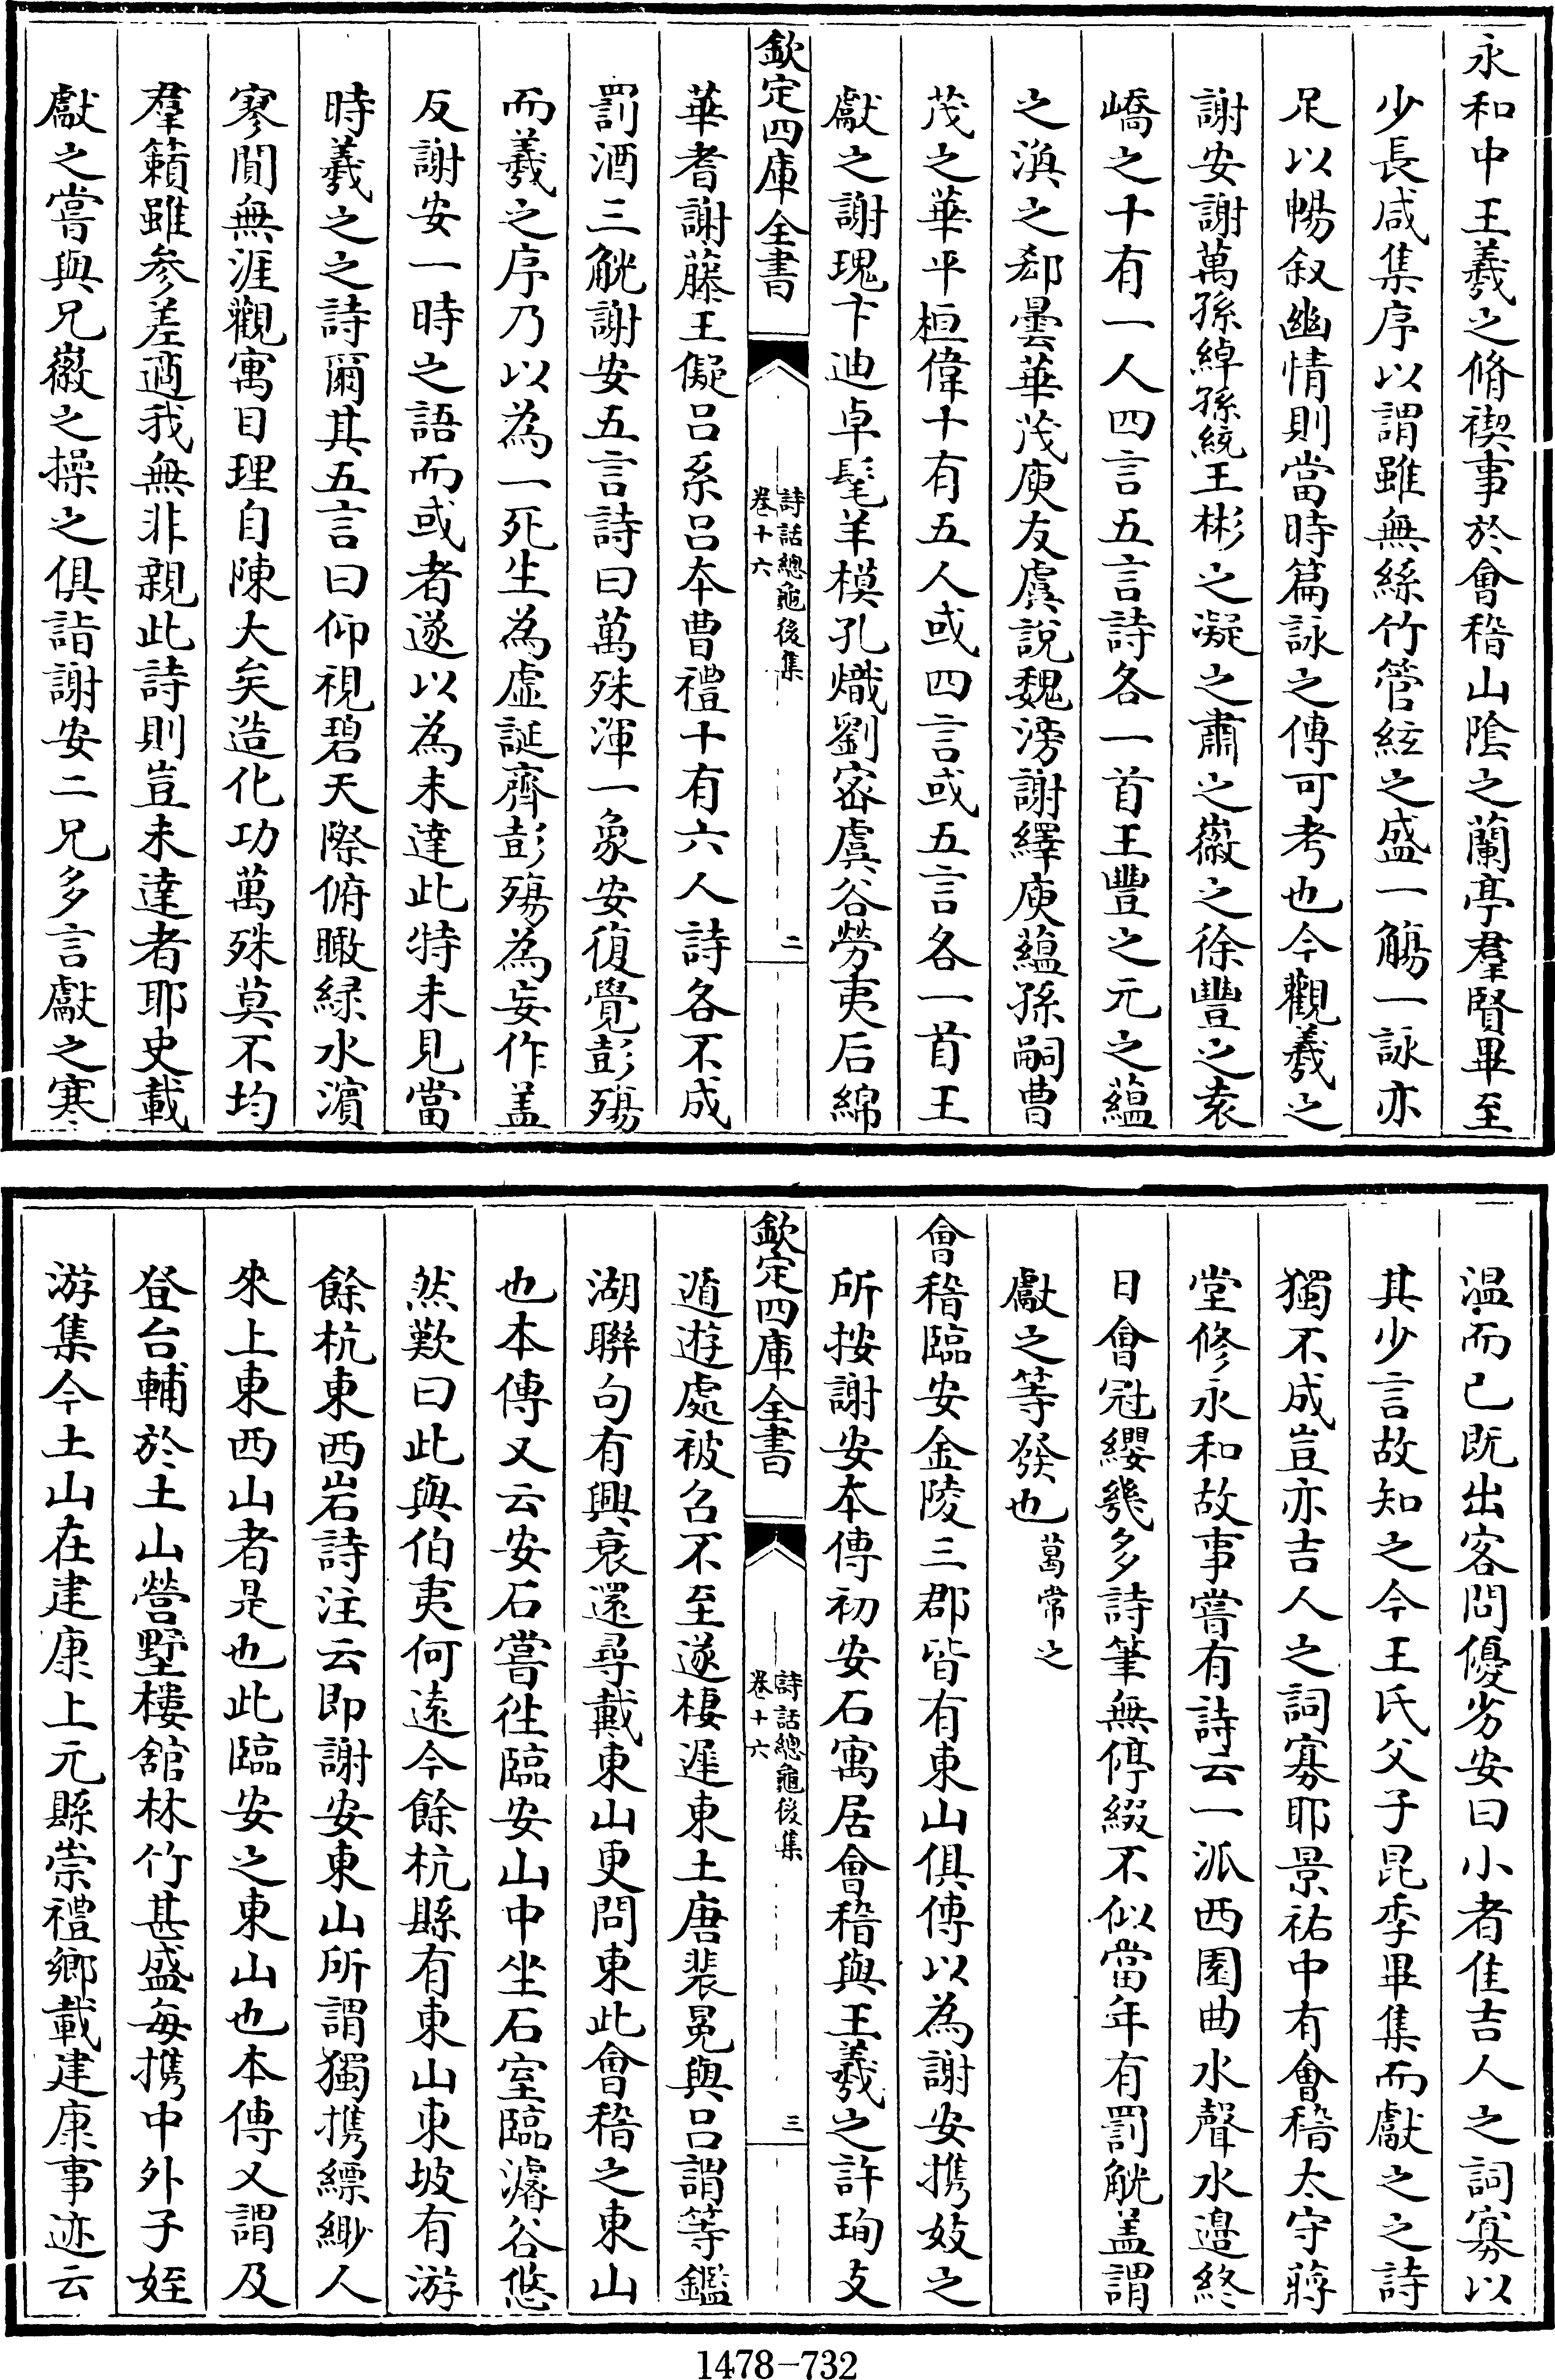 永和中王羲之脩禊事於會稽山陰之蘭亭羣賢畢至
少長咸集序以謂雖無絲竹管絃之盛一觴一詠亦
足以暢叙幽情則當時篇詠之傳可考也今觀羲之
謝安謝萬孫綽孫統王彬之凝之肅之徽之徐豐之袁
嶠之十有一人四言五言詩各一首王豐之元之蘊
之渙之郄曇華茂庾友虞說魏滂謝繹庾蘊孫嗣曹
茂之華平桓偉十有五人或四言或五言各一首王
獻之謝瑰卞迪卓髦羊模孔熾劉密虞谷勞夷后綿
欽定四庫全書
詩話總龜後集
卷十六
二
華耆謝藤王儗吕系吕本曹禮十有六人詩各不成
罰酒三觥謝安五言詩曰萬殊渾一象安復覺彭殤
而羲之序乃以為一死生為虛誕齊彭殤為妄作盖
反謝安一時之語而或者遂以為未達此特未見當
時羲之之詩爾其五言曰仰視碧天際俯瞰緑水濵
寥閴無涯觀寓目理自陳大矣造化功萬殊莫不均
羣籟雖參差適我無非親此詩則豈未達者耶史載
獻之嘗與兄徽之操之俱詣謝安二兄多言獻之寒
温而已既出客問優劣安曰小者佳吉人之詞寡以
其少言故知之今王氏父子昆季畢集而獻之之詩
獨不成豈亦吉人之詞寡耶景祐中有會稽太守蔣
堂修永和故事嘗有詩云一派西園曲水聲水邉終
日會冠纓幾多詩筆無停綴不似當年有罰觥盖謂
獻之等發也葛常之
會稽臨安金陵三郡皆有東山俱傳以為謝安携妓之
所按謝安本傳初安石寓居會稽與王羲之許珣支
欽定四庫全書
詩話總龜後集
卷十六
三
遁遊處被召不至遂棲遲東土唐裴冕與吕謂等鑑
湖聯句有興衰還尋戴東山更問東此會稽之東山
也本傳又云安石嘗徃臨安山中坐石室臨濬谷悠
然歎曰此與伯夷何逺今餘杭縣有東山東坡有游
餘杭東西岩詩注云即謝安東山所謂獨携縹緲人
來上東西山者是也此臨安之東山也本傳又謂及
登台輔於土山營墅樓舘林竹甚盛每携中外子姪
游集今土山在建康上元縣崇禮鄉載建康事迹云
1478-732